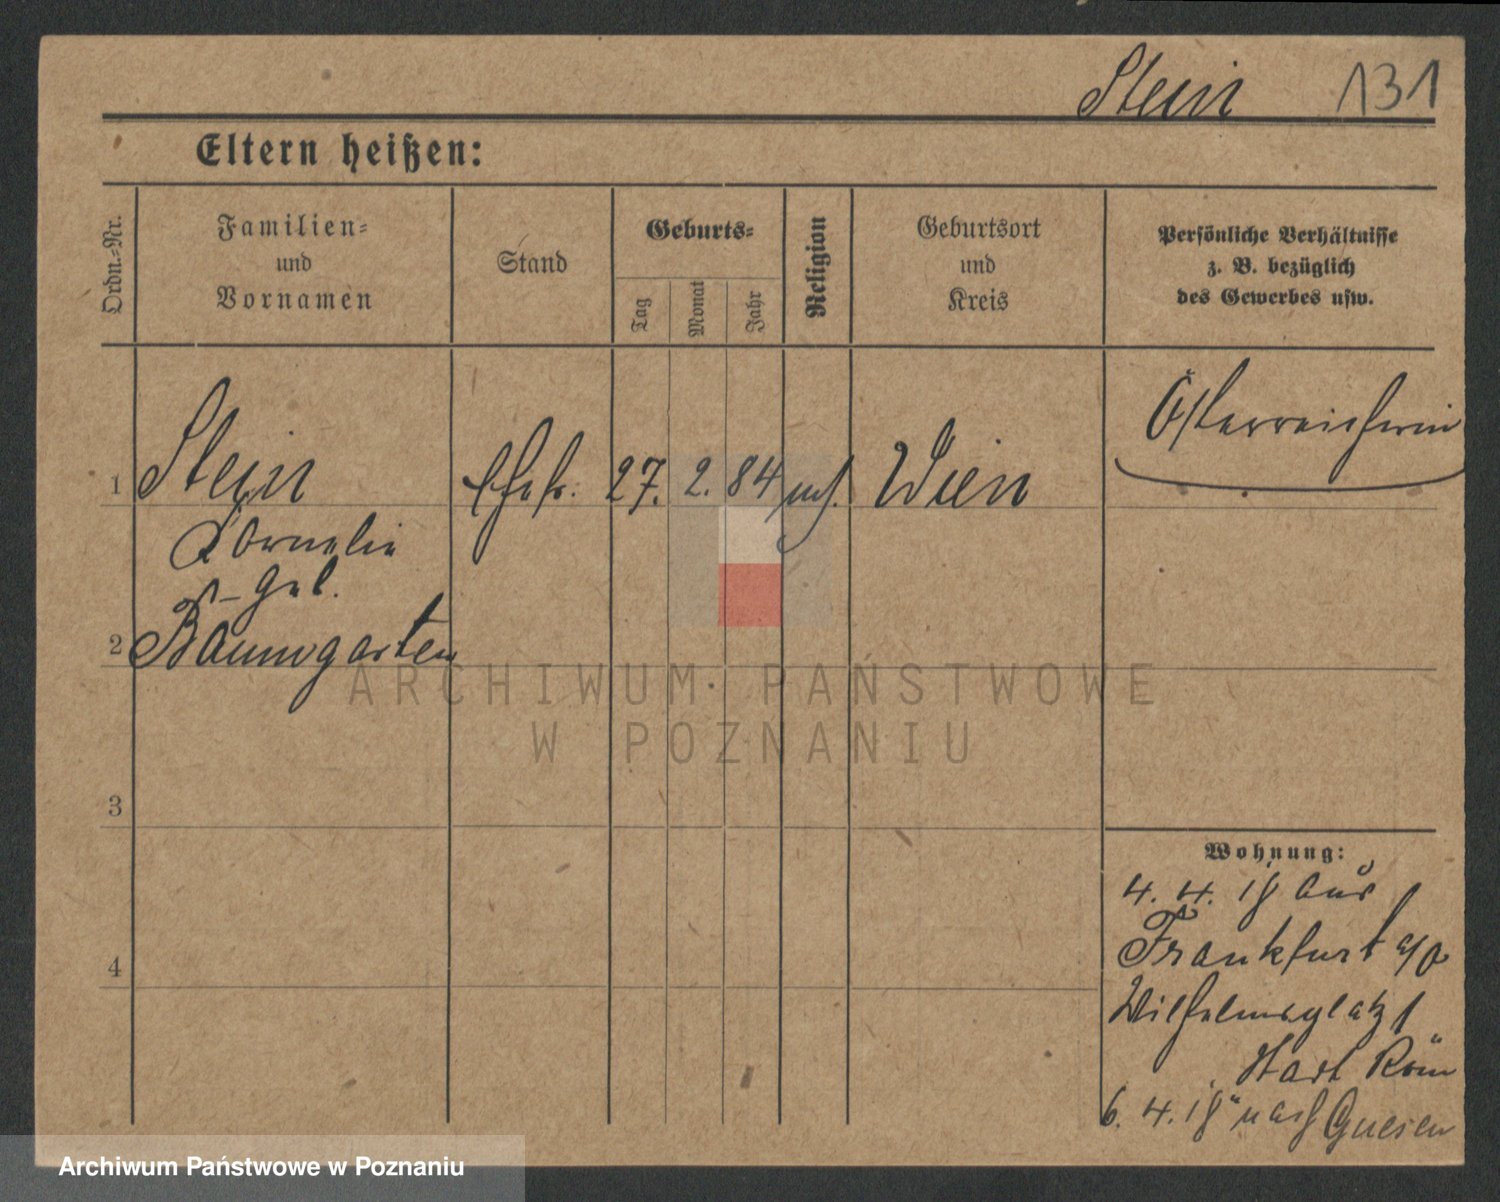 Stein 131
Eltern heißen:
Ordn.-Nr.
Familien-
und
Vornamen
Stand
Geburts-
Tag
Monat
Jahr
Religion
Geburtsort
und
Kreis
Persönliche Verhältnisse
z. B. bezüglich
des Gewerbes usw.
Österreicherin
1 Stein Ehefr. 27. 2. 84 Wien
Kornelie
geb.
2 Baumgarten
3
4
Wohnung:
4. 4. 18 aus
Frankfurt a/O
Wilhelmsplatz 1
6. 4. 18 nach Gnesen
ARCHIWUM PAŃSTWOWE
W POZNANIU
Archiwum Państwowe w Poznaniu